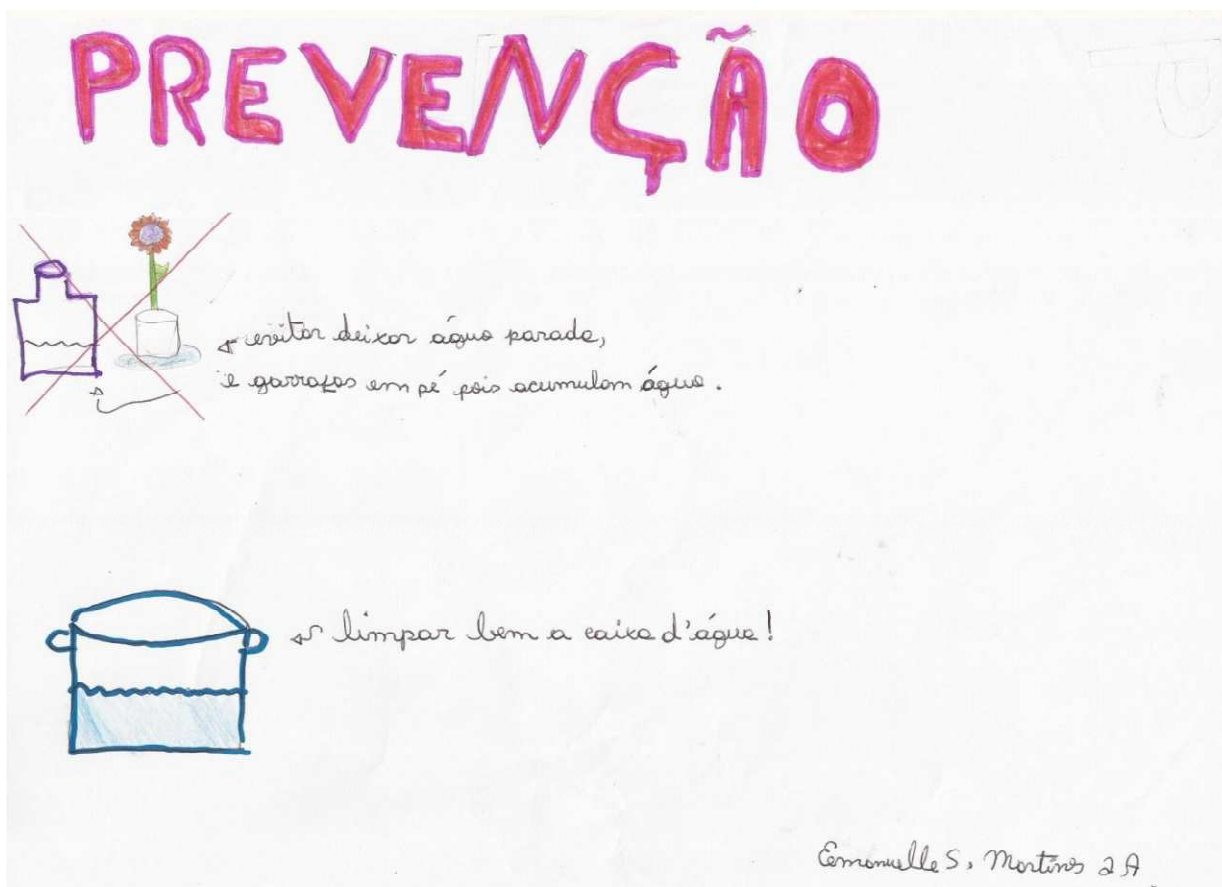 PREVENÇÃO
evitar deixar água parada,
e garrafas em pé pois acumulam água.
limpar bem a caixa d'água!
Emanuelle S. Martins 2A